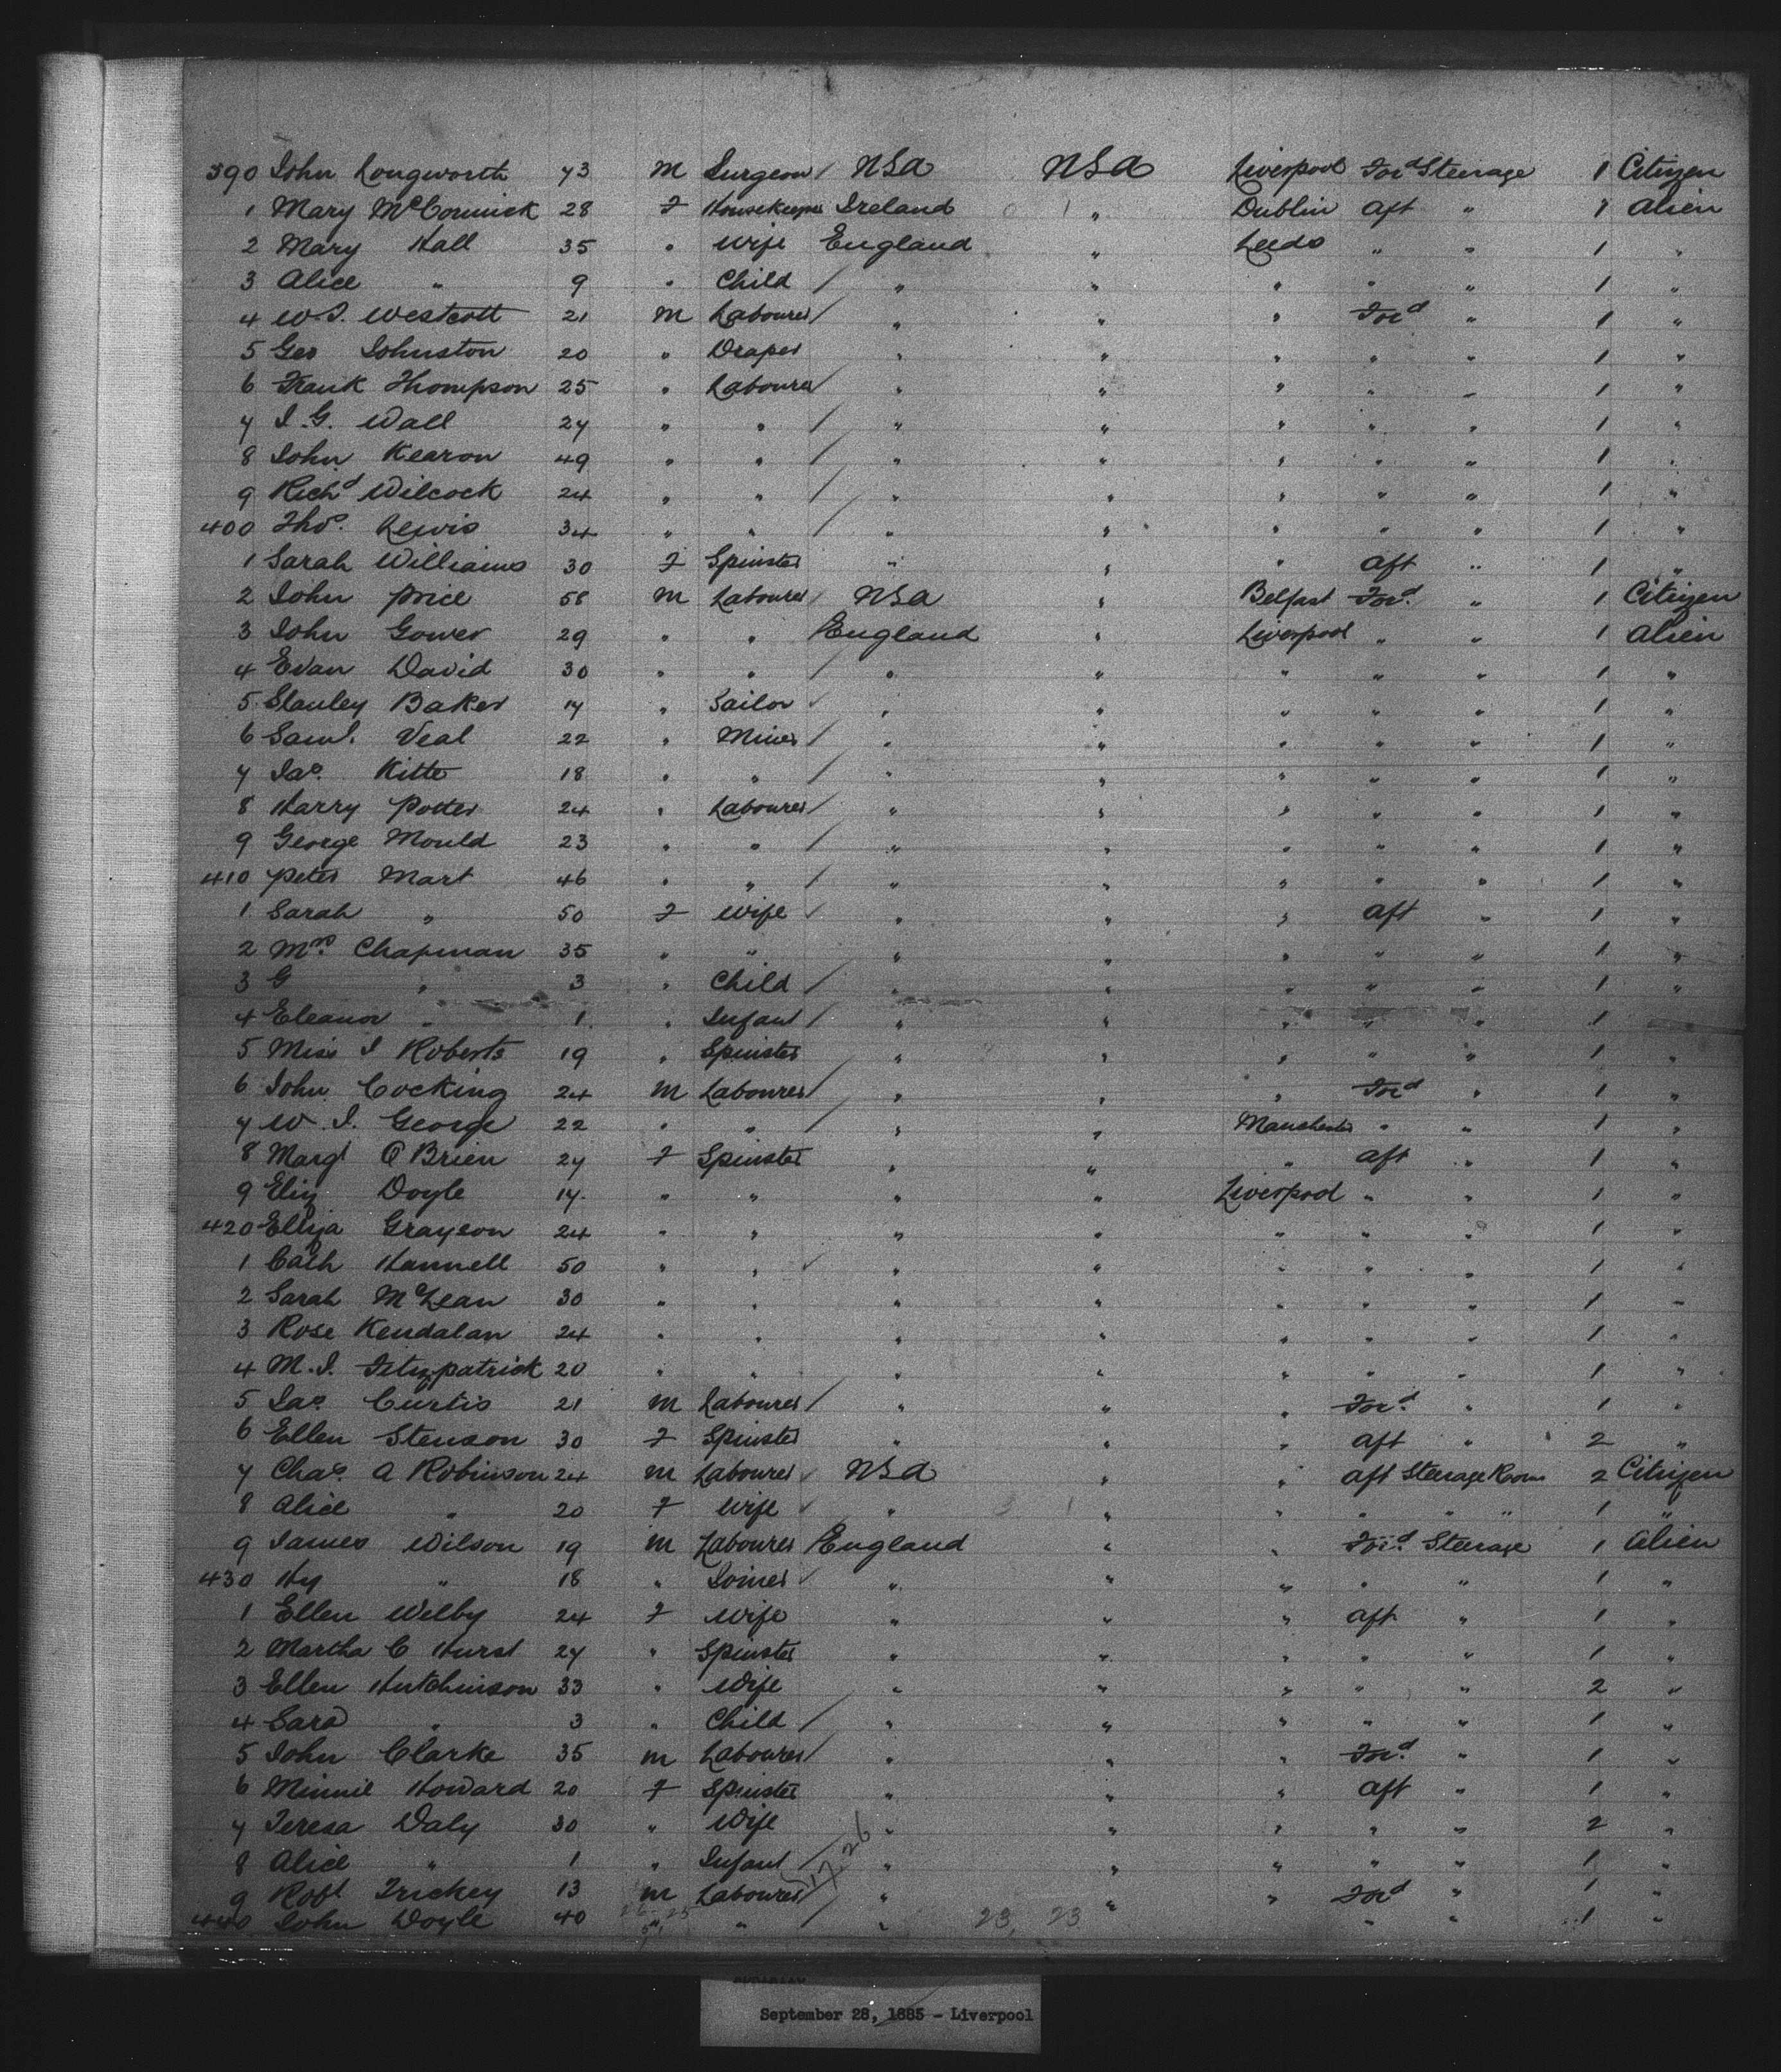 390 John Longworth 43 M Surgeon / USA USA Liverpool For'd Steerage 1 Citizen
1 Mary McCormick 28 F Housekeeper Ireland " Dublin Aft " 1 Alien
2 Mary Hall 35 " Wife England " Leeds " " 1 "
3 Alice " 9 " Child / " " " " " 1 "
4 W.J. Westcott 21 M Labourer / " " " For'd " 1 "
5 Geo Johnston 20 " Draper " " " " " 1 "
6 Frank Thompson 25 " Labourer / " " " " " 1 "
7 J.G. Wall 27 " " / " " " " " 1 "
8 John Kearon 49 " " / " " " " " 1 "
9 Rich'd Wilcock 24 " " / " " " " " 1 "
400 Thos. Lewis 34 " " / " " " " " 1 "
1 Sarah Williams 30 F Spinster " " " Aft " 1 "
2 John Price 58 M Labourer / USA " Belfast For'd " 1 Citizen
3 John Gower 29 " " / England " Liverpool " " 1 Alien
4 Evan David 30 " " / " " " " " 1 "
5 Stanley Baker 17 " Sailor " " " " " 1 "
6 Saml. Veal 22 " Miner / " " " " " 1 "
7 Jas. Kitto 18 " " / " " " " " 1 "
8 Harry Potter 24 " Labourer / " " " " " 1 "
9 George Mould 23 " " / " " " " " 1 "
410 Peter Mart 46 " " / " " " " " 1 "
1 Sarah " 50 F Wife " " " Aft " 1 "
2 Mrs. Chapman 35 " " " " " " " 1 "
3 G " 3 " Child / " " " " " 1 "
4 Eleanor " 1 " Infant / " " " " " 1 "
5 Miss J Roberts 19 " Spinster " " " " " 1 "
6 John Cocking 24 M Labourer / " " " For'd " 1 "
7 W. J. George 22 " " / " " Manchester " " 1 "
8 Margt O'Brien 27 F Spinster " " " Aft " 1 "
9 Eliz Doyle 17 " " " " Liverpool " " 1 "
420 Eliza Grayson 24 " " " " " " " 1 "
1 Cath Hannell 50 " " " " " " " 1 "
2 Sarah McLean 30 " " " " " " " 1 "
3 Rose Kendalan 24 " " " " " " " 1 "
4 M.J. Fitzpatrick 20 " " " " " " " 1 "
5 Jas. Curtis 21 M Labourer / " " " For'd " 1 "
6 Ellen Stenson 30 F Spinster " " " Aft " 2 "
7 Chas. A Robinson 24 M Labourer USA " " Aft Steerage Room 2 Citizen
8 Alice " 20 F Wife " " " " " " 1 "
9 James Wilson 19 M Labourer / England " " For'd Steerage 1 Alien
430 Hy " 18 " Joiner " " " " " 1 "
1 Ellen Welby 24 F Wife " " " Aft " 1 "
2 Martha C Hurst 27 " Spinster " " " " " 1 "
3 Ellen Hutchinson 33 " Wife " " " " " 2 "
4 Sara " 3 " Child / " " " " " 1 "
5 John Clarke 35 M Labourer / " " " For'd " 1 "
6 Minnie Howard 20 F Spinster " " " Aft " 1 "
7 Teresa Daly 30 " Wife " " " " " 2 "
8 Alice " 1 " Infant / " " " " " 1 "
9 Robt Trickey 13 M Labourer / " " " For'd " 1 "
440 John Doyle 40 " " / " 23, 23 " " 1 "
September 28, 1885 - Liverpool